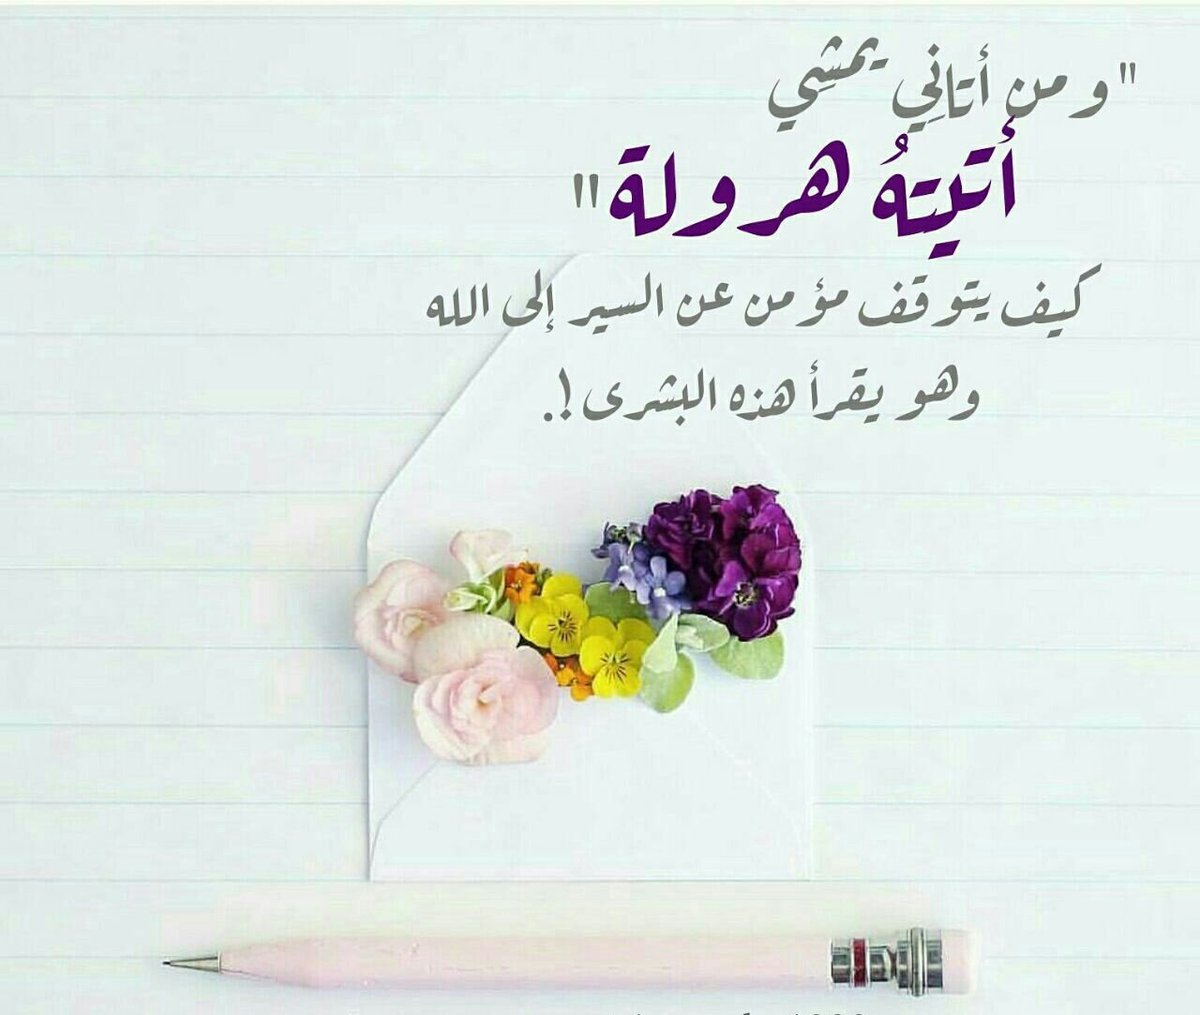 "و من أتانِي يمشِي
أتيتهُ هرولة"
كيف يتوقف مؤمن عن السير إلى الله
وهو يقرأ هذه البشرى !.